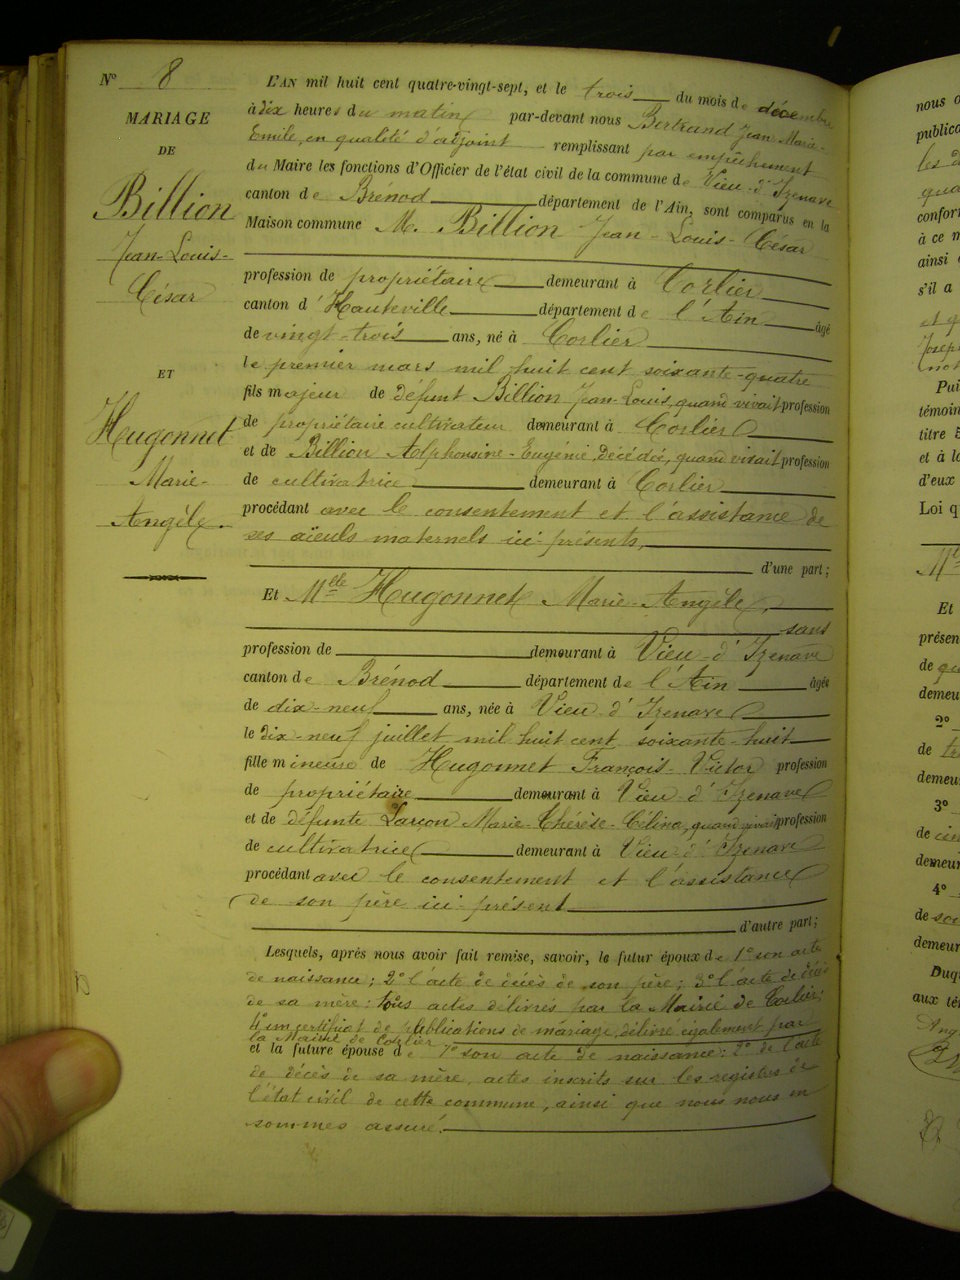 N° 8
MARIAGE
DE
Billion
Jean-Louis-
César
ET
Hugonnet
Marie-
Angèle.
L'AN mil huit cent quatre-vingt-sept, et le trois du mois de décembre
à dix heures du matin par-devant nous Bertrand Jean Marie-
Emile, en qualité d'adjoint remplissant par empêchement
du Maire les fonctions d'Officier de l'état civil de la commune de Vieu-d'Izenave
canton de Brénod département de l'Ain, sont comparus en la
Maison commune M. Billion Jean-Louis-César
profession de propriétaire demeurant à Corlier
canton d'Hauteville département de l'Ain âgé
de vingt-trois ans, né à Corlier
le premier mars mil huit cent soixante-quatre
fils majeur de défunt Billion Jean-Louis, quand vivait profession
de propriétaire cultivateur demeurant à Corlier
et de Billion Alphonsine-Eugénie, décédée, quand vivait profession
de cultivatrice demeurant à Corlier
procédant avec le consentement et l'assistance de
ses aïeuls maternels ici présents,
d'une part;
Et Mlle Hugonnet Marie-Angèle,
sans
profession de demeurant à Vieu-d'Izenave
canton de Brénod département de l'Ain âgée
de dix-neuf ans, née à Vieu-d'Izenave
le dix-neuf juillet mil huit cent soixante-huit
fille mineure de Hugonnet François-Victor profession
de propriétaire demeurant à Vieu-d'Izenave
et de défunte Larcon Marie-Thérèse-Célina, quand vivait profession
de cultivatrice demeurant à Vieu-d'Izenave
procédant avec le consentement et l'assistance
de son père ici présent
d'autre part;
Lesquels, après nous avoir fait remise, savoir, le futur époux de 1° son acte
de naissance; 2° l'acte de décès de son père; 3° l'acte de décès
de sa mère: tous actes délivrés par la Mairie de Corlier;
4° un certificat de publications de mariage délivré également par
la Mairie de Corlier
et la future épouse de 1° son acte de naissance: 2° de l'acte
de décès de sa mère, actes inscrits sur les registres de
l'état civil de cette commune, ainsi que nous nous en
sommes assuré.
nous o
publica
confor
à ce m
ainsi
s'il a
Pui
témoin
titre
et à la
d'eux
Loi q
Et
présen
de
demeu
2°
de
demeu
3°
de
demeur
4°
de
demeur
Duq
aux té